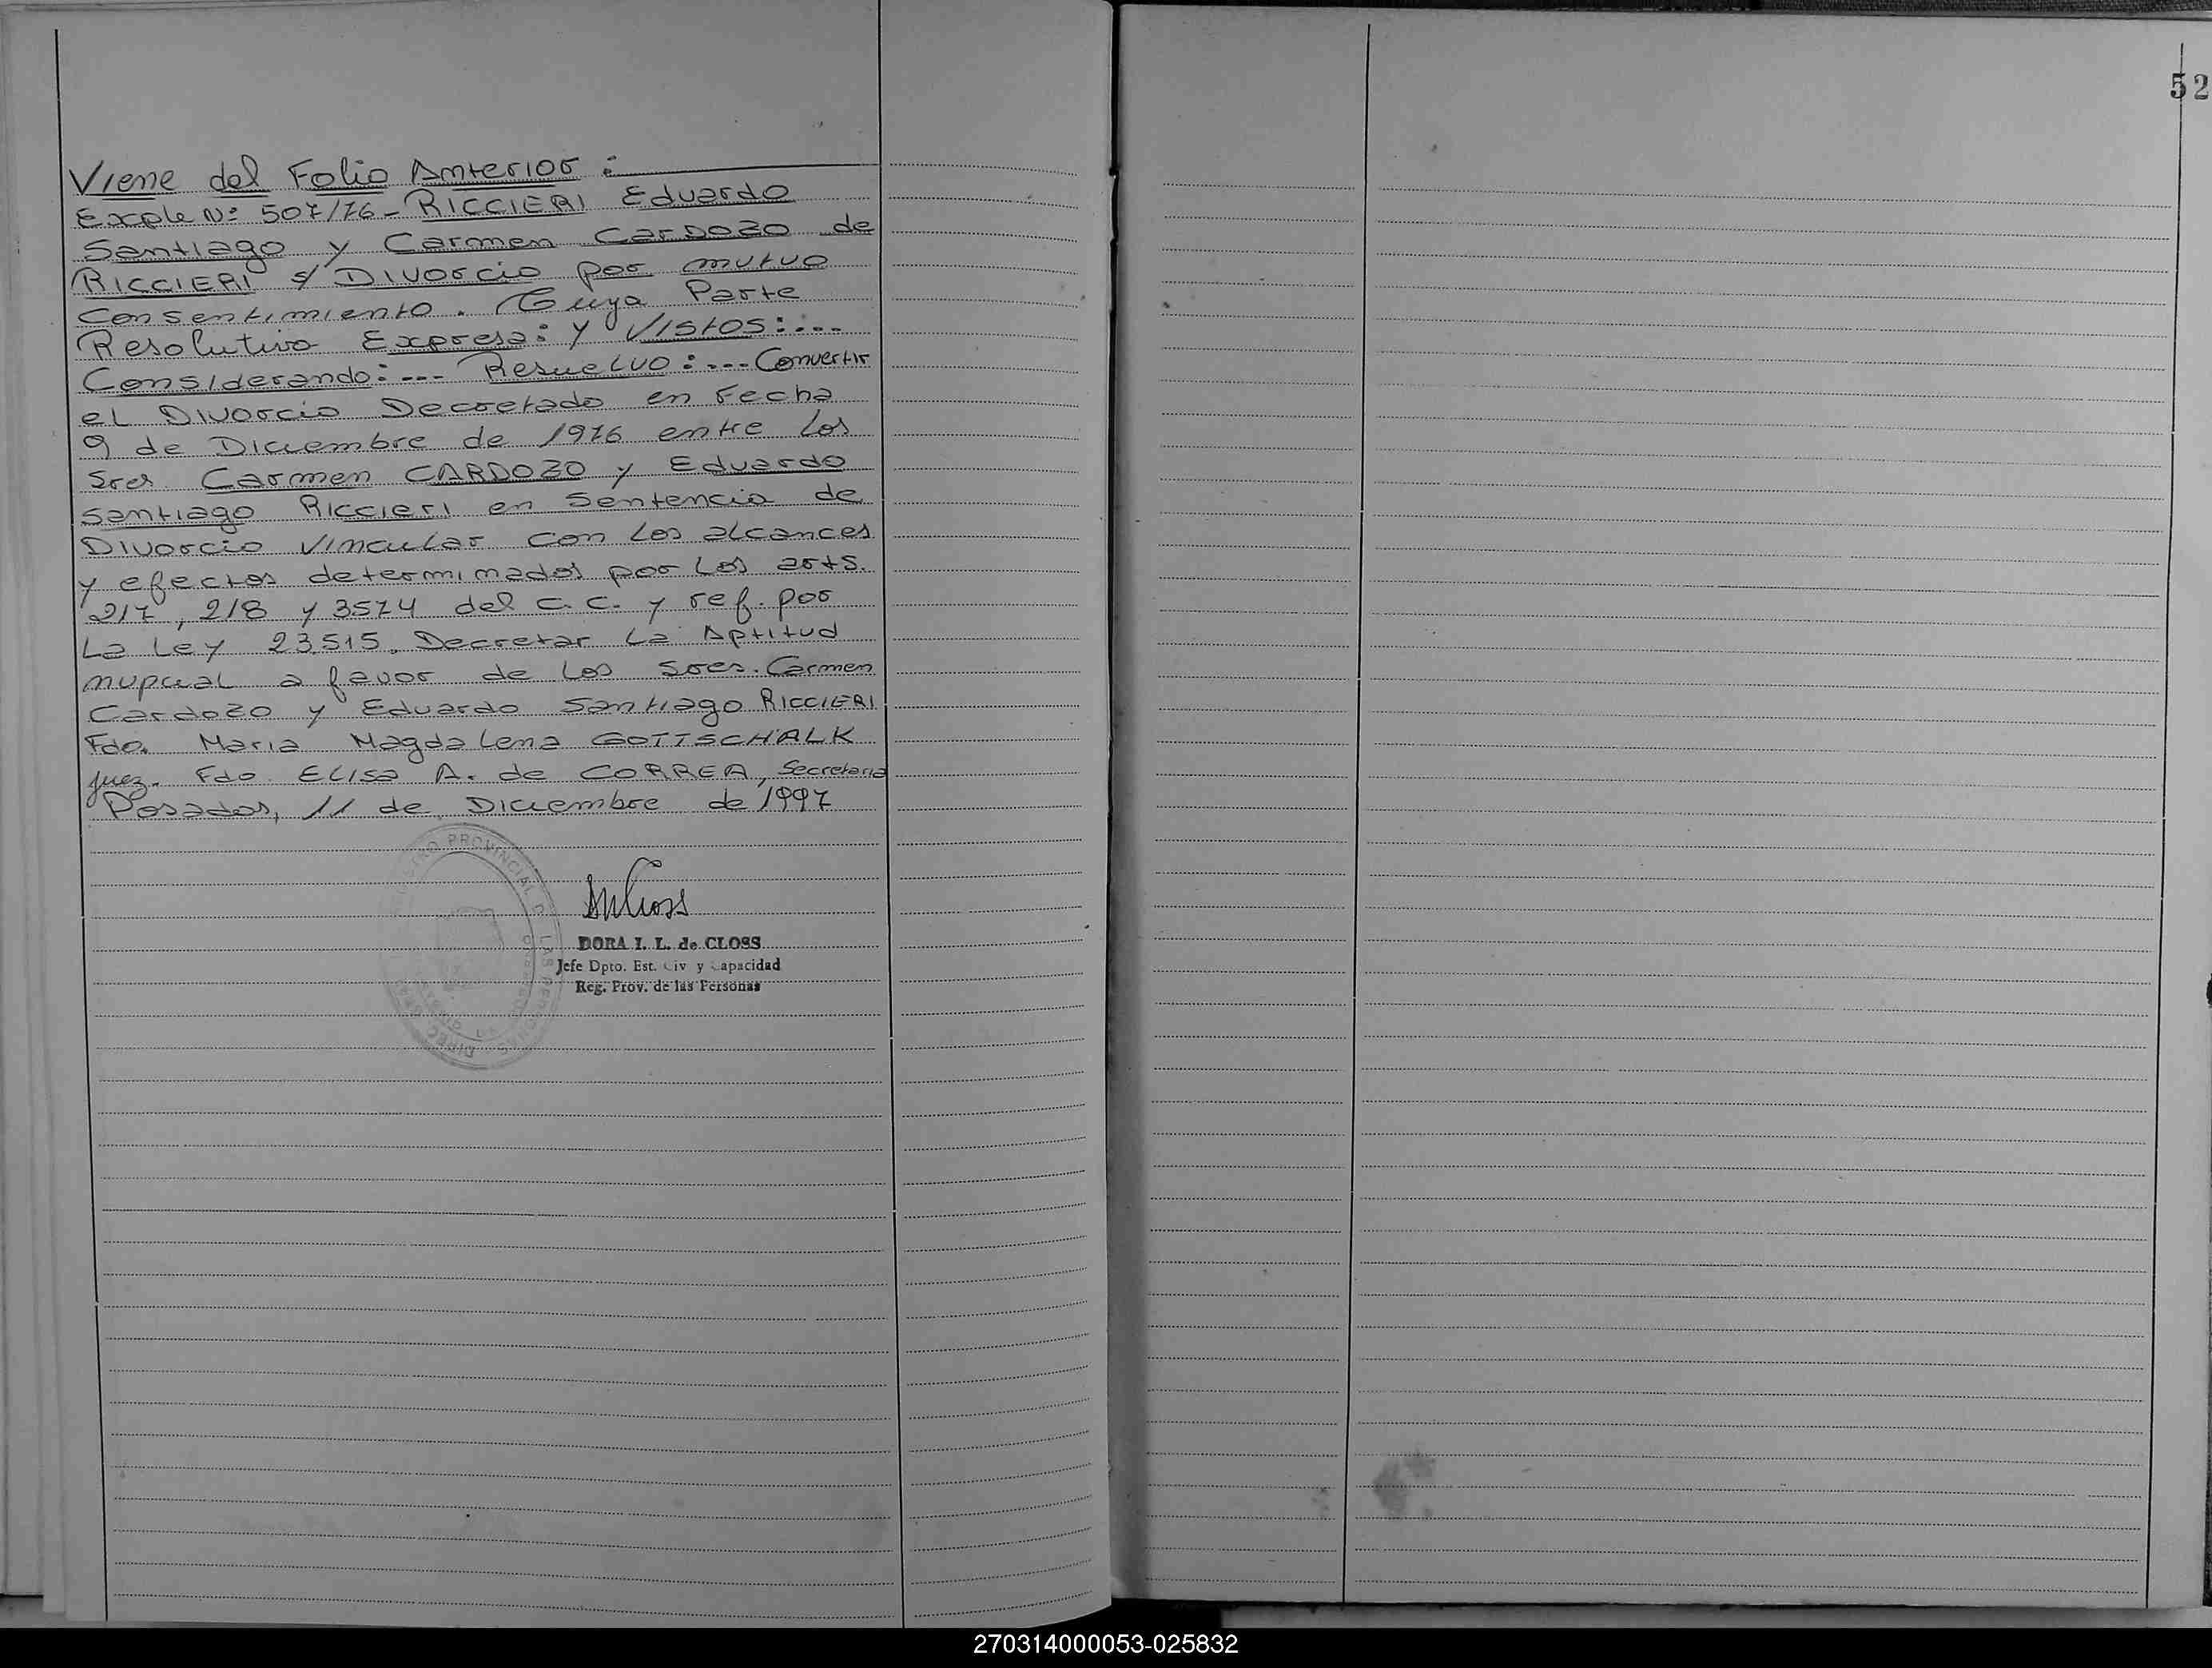 52
Viene del Folio Anterior :
Expte Nº 507/76 - RICCIERI Eduardo
Santiago y Carmen CARDOZO de
RICCIERI s/ Divorcio por mutuo
Consentimiento. Cuya Parte
Resolutiva Expresa: Y Vistos:...
Considerando:... Resuelvo:... Convertir
el Divorcio Decretado en Fecha
9 de Diciembre de 1976 entre los
Sres. Carmen CARDOZO y Eduardo
Santiago Riccieri en Sentencia de
Divorcio Vincular con los alcances
y efectos determinados por los arts.
217, 218 y 3574 del C.C. y ref. por
La Ley 23.515. Decretar la Aptitud
nupcial a favor de los Sres. Carmen
Cardozo y Eduardo Santiago RICCIERI
Fdo. Maria Magdalena GOTTSCHALK
Juez. Fdo. ELISA A. de CORREA, Secretaria
Posadas, 11 de Diciembre de 1997
DORA I. L. de CLOSS
Jefe Dpto. Est. Civ y Capacidad
Reg. Prov. de las Personas
270314000053-025832